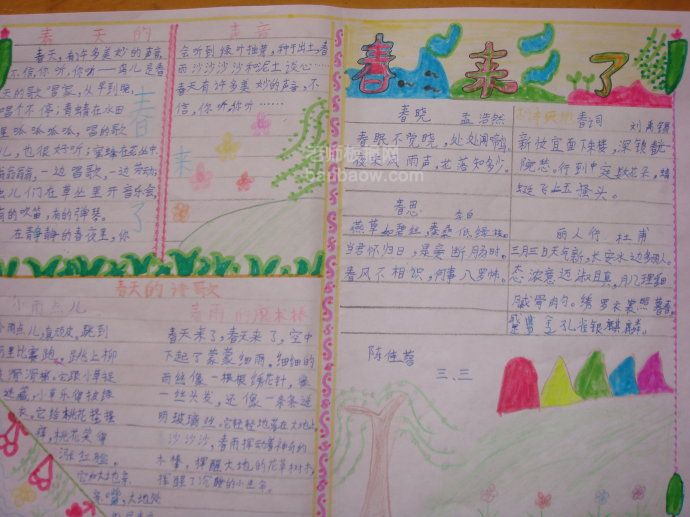 春天的声音
春天,有许多美妙的声音,
不信,你听,你听——鸟儿是春
天的歌唱家,从早到晚,
唱个不停;青蛙在水田
里呱呱呱呱,唱的歌
儿,也很好听;蜜蜂在花丛中
嗡嗡嗡,一边唱歌,一边劳动;
虫儿们在草丛里开音乐会,
有的吹笛,有的弹琴。
在静静的春夜里,你
会听到绿叶抽芽,种子出土,春
雨沙沙沙沙和泥土谈心……
春天有许多美妙的声音,不
信,你听,你听……
春
来
了
春天的诗歌
小雨点儿
小雨点儿,真顽皮,跳到
里比赛跑,跳上柳
滑滑梯,它跟小草捉
迷藏,小草乐得
它给桃花
桃花笑
涨红脸。
它和大地亲
亲嘴,大地处
春雨的魔术棒
春天来了,春天来了,空中
下起了蒙蒙细雨。细细的
雨丝像一根根绣花针,像
一丝头发,还像一条条透
明玻璃丝。它轻轻地落在大地上,
沙沙沙,春雨挥动着神奇的
木棒,挥醒大地的花草树木,
挥醒了沉睡的小
春来了
春晓 孟浩然
春眠不觉晓,处处闻啼鸟。
夜来风雨声,花落知多少。
春思
李白
燕草如碧丝,秦桑低绿枝。
当君怀归日,是妾断肠时。
春风不相识,何事入罗帏。
春词 刘禹锡
新妆宜面下朱楼,深锁春光一
院愁。行到中庭数花朵,蜻
蜓飞上玉搔头。
丽人行 杜甫
三月三日天气新,长安水边多丽人。
态浓意远淑且真,肌理细
腻骨肉匀。绣罗衣裳照暮春,
蹙金孔雀银麒麟。
三、三
老师板报网
banbaow.com